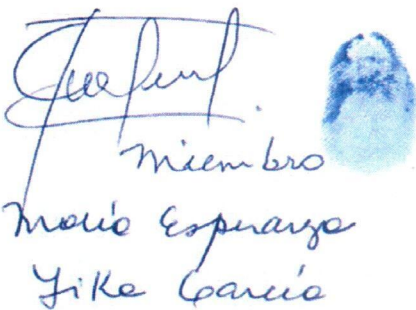 Miembro
María Esperanza
Yika García